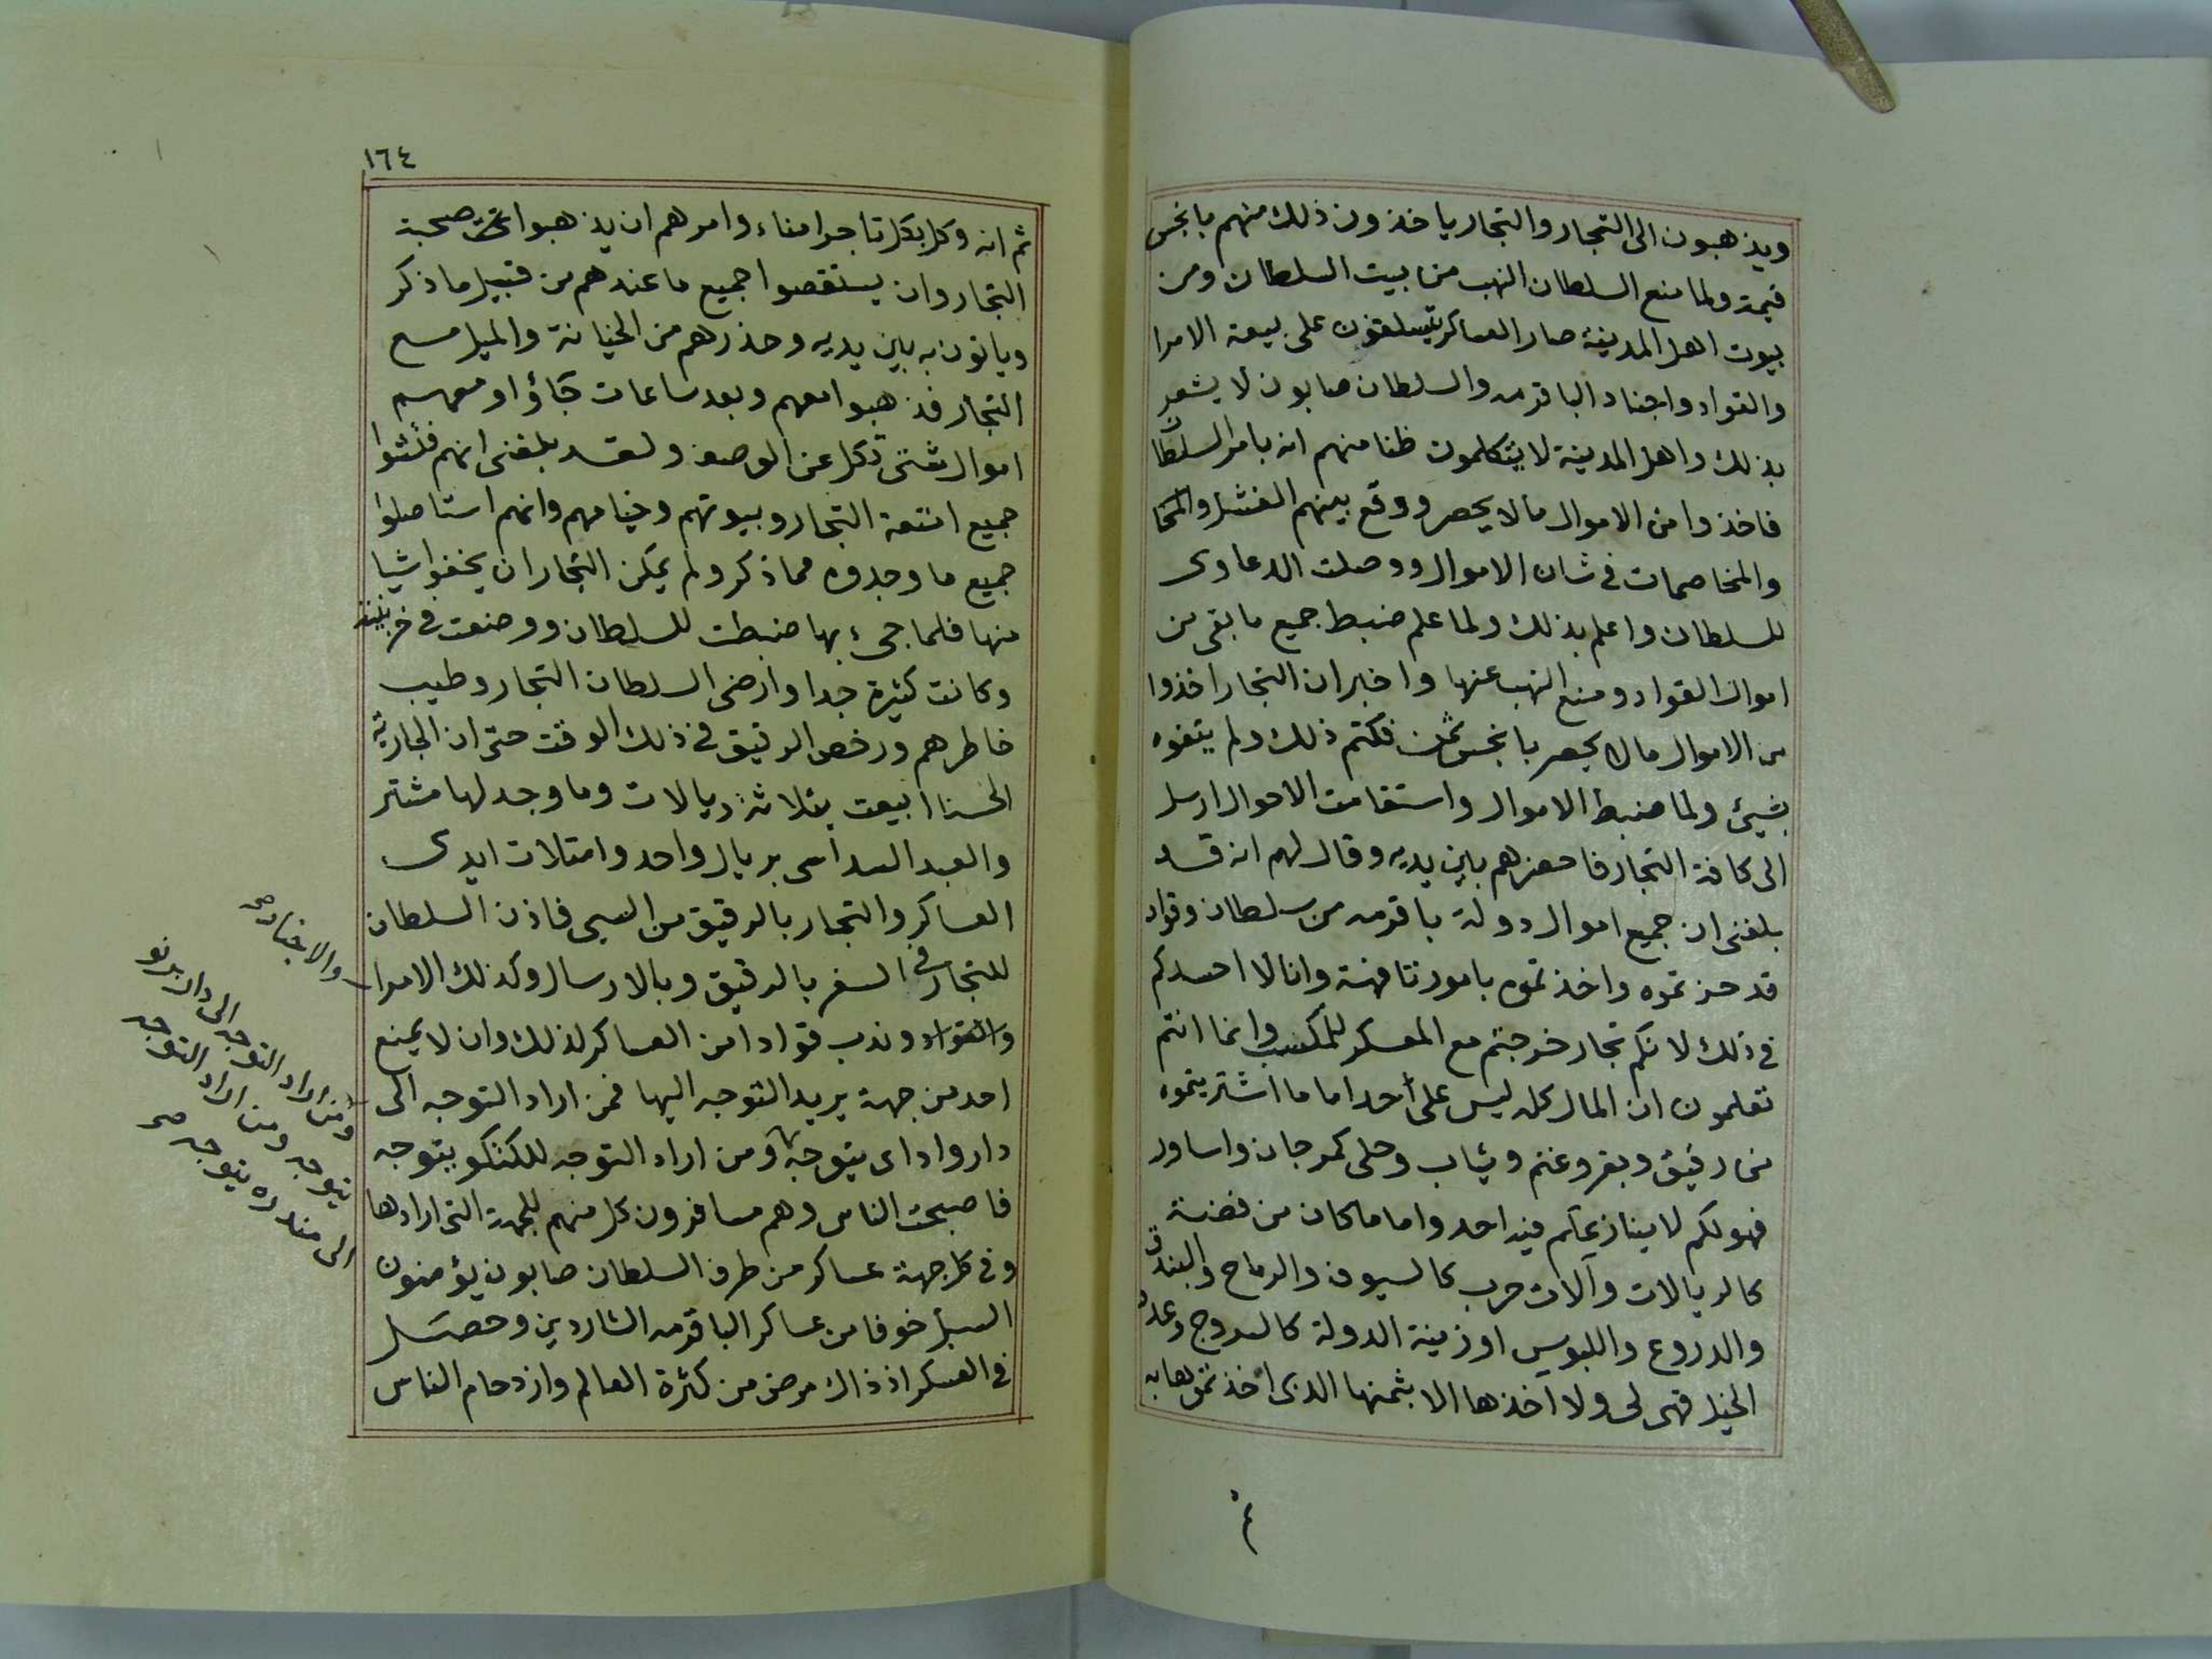 ويذهبون الى التجار والتجار ياخذون ذلك منهم بابخس
قيمة ولما منع السلطان النهب من بيت السلطان ومن
بيوت اهل المدينة صار العساكر يتسلقون على بيعة الامرا
والقواد واجناد الباقرمه والسلطان صابون لا يشعر
بذلك واهل المدينة لا يتكلمون ظنا منهم انه بامر السلطان
فاخذوا من الاموال مالا يحصر ووقع بينهم الفشل والمحا
والمخاصمات فى شان الاموال ووصلت الدعاوى
للسلطان واعلم بذلك ولما علم ضبط جميع ما بقى من
اموال القواد ومنع النهب عنها واخبر ان التجار اخذوا
من الاموال مالا يحصر بابخس ثمن فكتم ذلك ولم يتفوه
بشيئ ولما ضبط الاموال واستقامت الاحوال ارسل
الى كافة التجار فاحضرهم بين يديه وقال لهم انه قد
بلغنى ان جميع اموال دولة باقرمه من سلطان وقواد
قد حزتموه واخذتموه بامور تافهة وانا لا احسدكم
فى ذلك لانكم تجار خرجتم مع العسكر للمكسب وانما انتم
تعلمون ان المال كله ليس على احد اما ما اشتريتموه
من رقيق وبقر وغنم وثياب وحلى كمرجان واساور
فهو لكم لا ينازعكم فيه احد واما ما كان من فضة
كالريالات وآلات حرب كالسيوف والرماح والبندق
والدروع واللبوس او زينة الدولة كالسروج وعدد
الخيل فهى لى ولا اخذها الا بثمنها الذى اخذتموها به
ثم
١٦٤
ثم انه وكل بكل تاجر امناء وامرهم ان يذهبوا صحبة
التجار وان يستقصوا جميع ما عندهم من قبيل ما ذكر
وياتون به بين يديه وحذرهم من الخيانة والميل مع
التجار فذهبوا معهم وبعد ساعات جاؤا ومعهم
اموال شتى تكل عن الوصف ولقد بلغنى انهم فتشوا
جميع امتعة التجار وبيوتهم وخيامهم وانهم استاصلوا
جميع ما وجدوه مما ذكر ولم يمكن التجار ان يخفوا شيا
منها فلما جىء بها ضبطت للسلطان ووضعت فى خزينته
وكانت كثيرة جدا وارضى السلطان التجار وطيب
خاطرهم ورخص الرقيق فى ذلك الوقت حتى ان الجارية
الحسنا ابيعت بثلاثة ريالات وما وجد لها مشتر
والعبد السداسى بريال واحد وامتلات ايدى
العساكر والتجار بالرقيق من السبى فاذن السلطان
للتجار فى السفر بالرقيق وبالارسال وكذلك الامرا
والقواد وندب قوادا من العساكر لذلك وان لا يمنع
احد من جهة يريد التوجه اليها فمن اراد التوجه الى
دار واداى يتوجه ومن اراد التوجه للكتكو يتوجه
فاصبحت الناس وهم مسافرون كل منهم للجهة التى ارادها
وفى كل جهة عساكر من طرف السلطان صابون يؤمنون
السبل خوفا من عساكر الباقرمه الشاردين وحصل
فى العسكر اذ ذاك مرض من كثرة العالم وازدحام الناس
والاجناد صح
ومن اراد التوجه الى دار برنو
يتوجه ومن اراد التوجه
الى مندره يتوجه صح